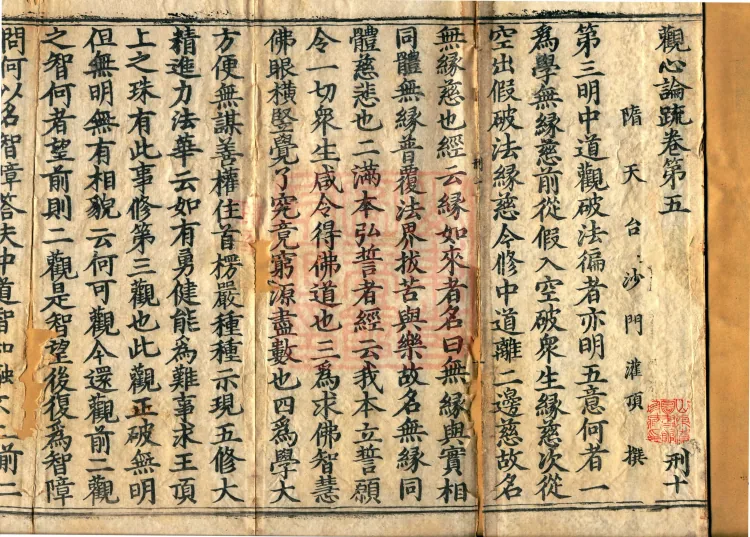 觀心論䟽卷第五
刑十
隋天台沙門灌頂撰
第三明中道觀破法徧者亦明五意何者一
爲學無緣慈前從假入空破衆生緣慈次從
空出假破法緣慈今修中道離二邊慈故名
刑一
無緣慈也經云緣如來者名曰無緣與實相
同體無緣普覆法界拔苦與樂故名無緣同
體慈悲也二滿本弘誓者經云我本立誓願
令一切衆生咸令得佛道也三爲求佛智慧
佛眼橫竪覺了究竟窮源盡數也四爲學大
方便無謀善權住首楞嚴種種示現五修大
精進力法華云如有勇健能爲難事求王頂
上之珠有此事修第三觀也此觀正破無明
但無明無有相貌云何可觀今還觀前二觀
之智何者望前則二觀是智望後復爲智障
問何以名智障答夫中道智如融 二前二